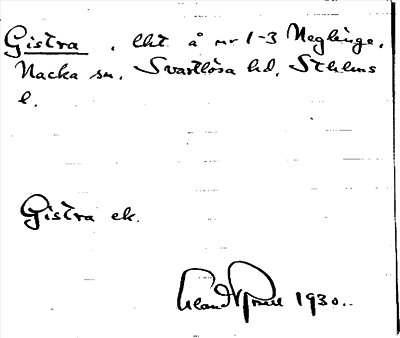 Gistra, lht å nr 1-3 Neglinge,
Nacka sn, Svartlösa hd, Sthlms
l.
Gistra ek.
1930.